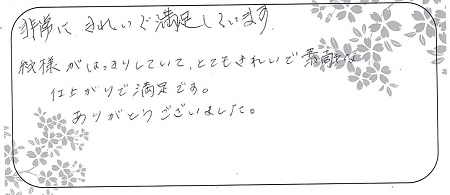 非常に、きれいで満足しています
紋様がはっきりしていて、とてもきれいで素敵な
仕上がりで満足です。
ありがとうございました。